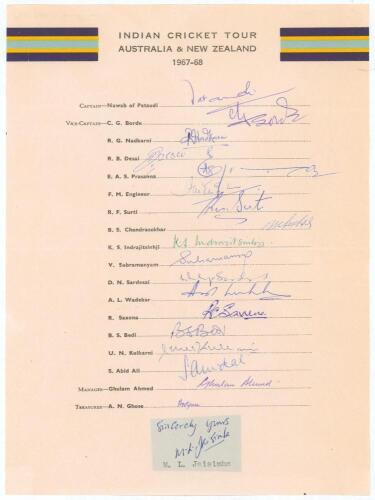 INDIAN CRICKET TOUR
AUSTRALIA & NEW ZEALAND
1967-68
CAPTAIN—Nawab of Pataudi
VICE-CAPTAIN—C. G. Borde
R. G. Nadkarni
R. B. Desai
E. A. S. Prasanna
F. M. Engineer
R. F. Surti
B. S. Chandrasekhar
K. S. Indrajitsinhji K.S. Indrajitsinhji
V. Subramanyam Subramanyam
D. N. Sardesai
A. L. Wadekar
R. Saxena RC Saxena
B. S. Bedi B S Bedi
U. N. Kulkarni
S. Abid Ali
MANAGER—Ghulam Ahmed Ghulam Ahmed
TREASURER—A. N. Ghose
Sincerely yours
M. L. Jaisimha